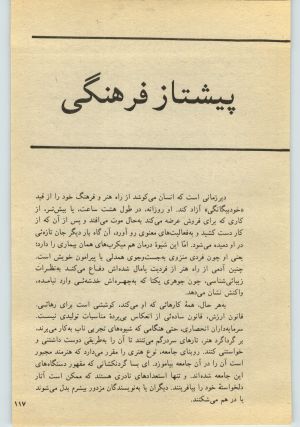 پیشتاز فرهنگی
دیرزمانی است که انسان می‌کوشد از راه هنر و فرهنگ خود را از قید
«خودبیگانگی» آزاد کند. او روزانه، در طول هشت ساعت، یا بیش‌تر، از
کاری که برای فروش عرضه می‌کند به‌حال موت می‌افتد و پس از آن که از
کار دست کشید و به‌فعالیت‌های معنوی رو آورد، آن گاه بار دیگر جان تازه‌ئی
در او دمیده می‌شود. امّا این شیوهٔ درمان هم میکرب‌های همان بیماری را دارد:
یعنی او چون فردی منزوی به‌جست‌وجوی همدلی با پیرامون خویش است.
چنین آدمی از راه هنر از فردیت پامال شده‌اش دفاع می‌کند به‌نظریات
زیبائی‌شناسی، چون جوهری یکتا که به‌چهره‌اش خدشه‌ئی وارد نیامده،
واکنش نشان می‌دهد.
به‌هر حال، همهٔ کارهائی که او می‌کند، کوششی است برای رهائی.
قانون ارزش، قانون ساده‌ئی از انعکاس بی‌پردهٔ مناسبات تولیدی نیست.
سرمایه‌داران انحصاری، حتی هنگامی که شیوه‌های تجربی ناب به‌کار می‌برند،
بر گرداگرد هنر، تارهای سردرگم می‌تنند تا آن را به‌طریقی دوست داشتنی و
خواستنی کنند. روبنای جامعه، نوع هنری را مقرر می‌دارد که هنرمند مجبور
است آن را در آن جامعه بیاموزد. ای بسا گردنکشانی که مقهور دستگاه‌های
این جامعه شده‌اند. و تنها استعدادهای نادری هستند که ممکن است آثار
دلخواستهٔ خود را بیافرینند. دیگران یا به‌نویسندگان مزدور بیشرم بدل می‌شوند
یا در هم می‌شکنند.
۱۱۷